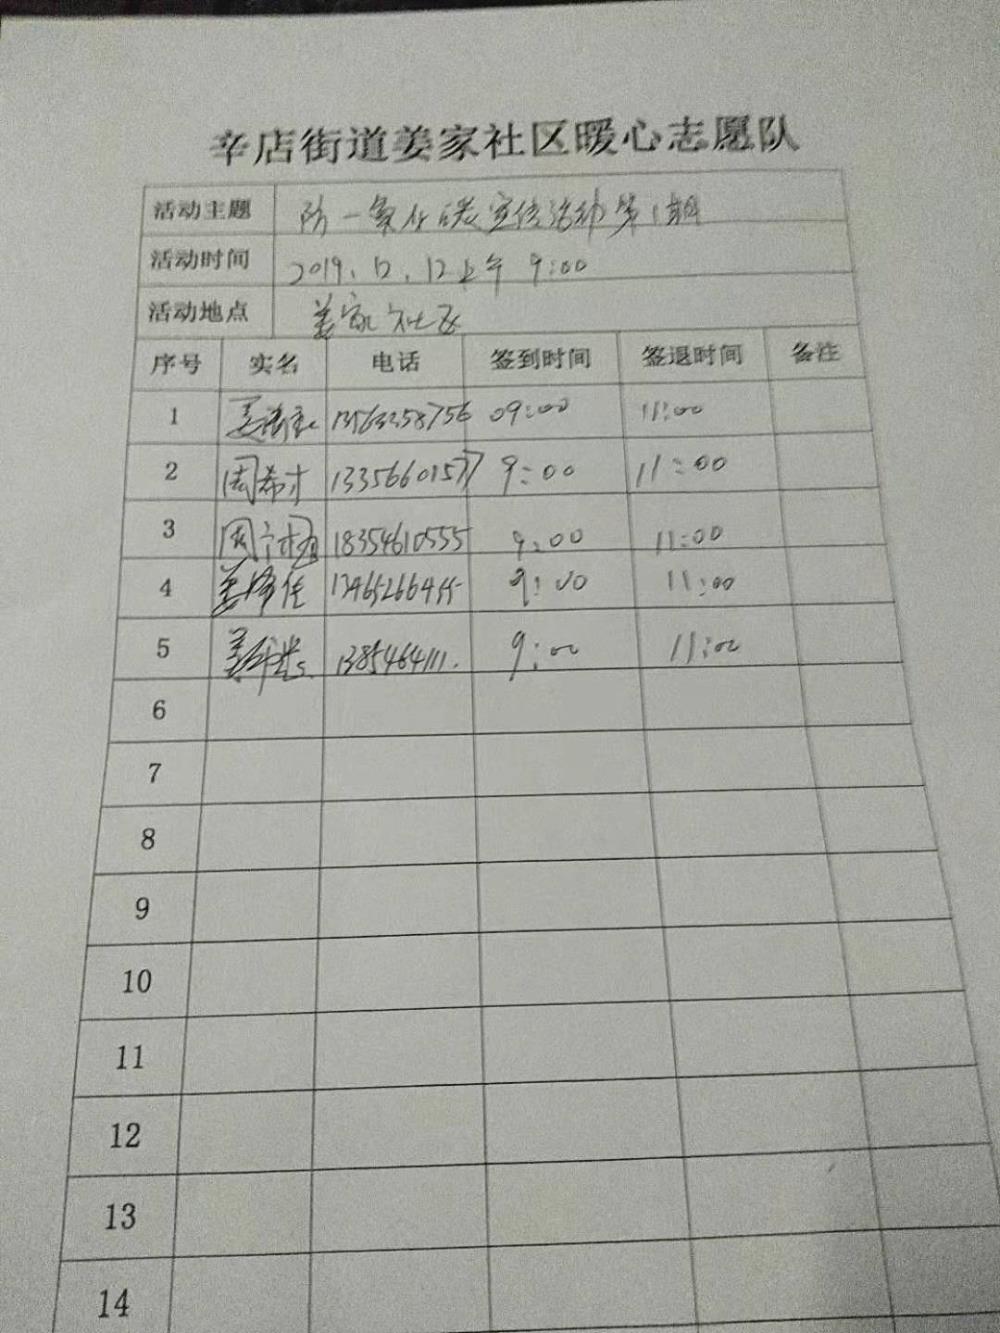 辛店街道姜家社区暖心志愿队
活动主题 防一氧化碳宣传活动第1期
活动时间 2019.12.12上午 9:00
活动地点 姜家社区
序号 实名 电话 签到时间 签退时间 备注
1 09:00 11:00
2 周希才 13356601577 9:00 11:00
3 18354610555 9:00 11:00
4 13465266455 9:00 11:00
5 1385464111. 9:00 11:00
6
7
8
9
10
11
12
13
14